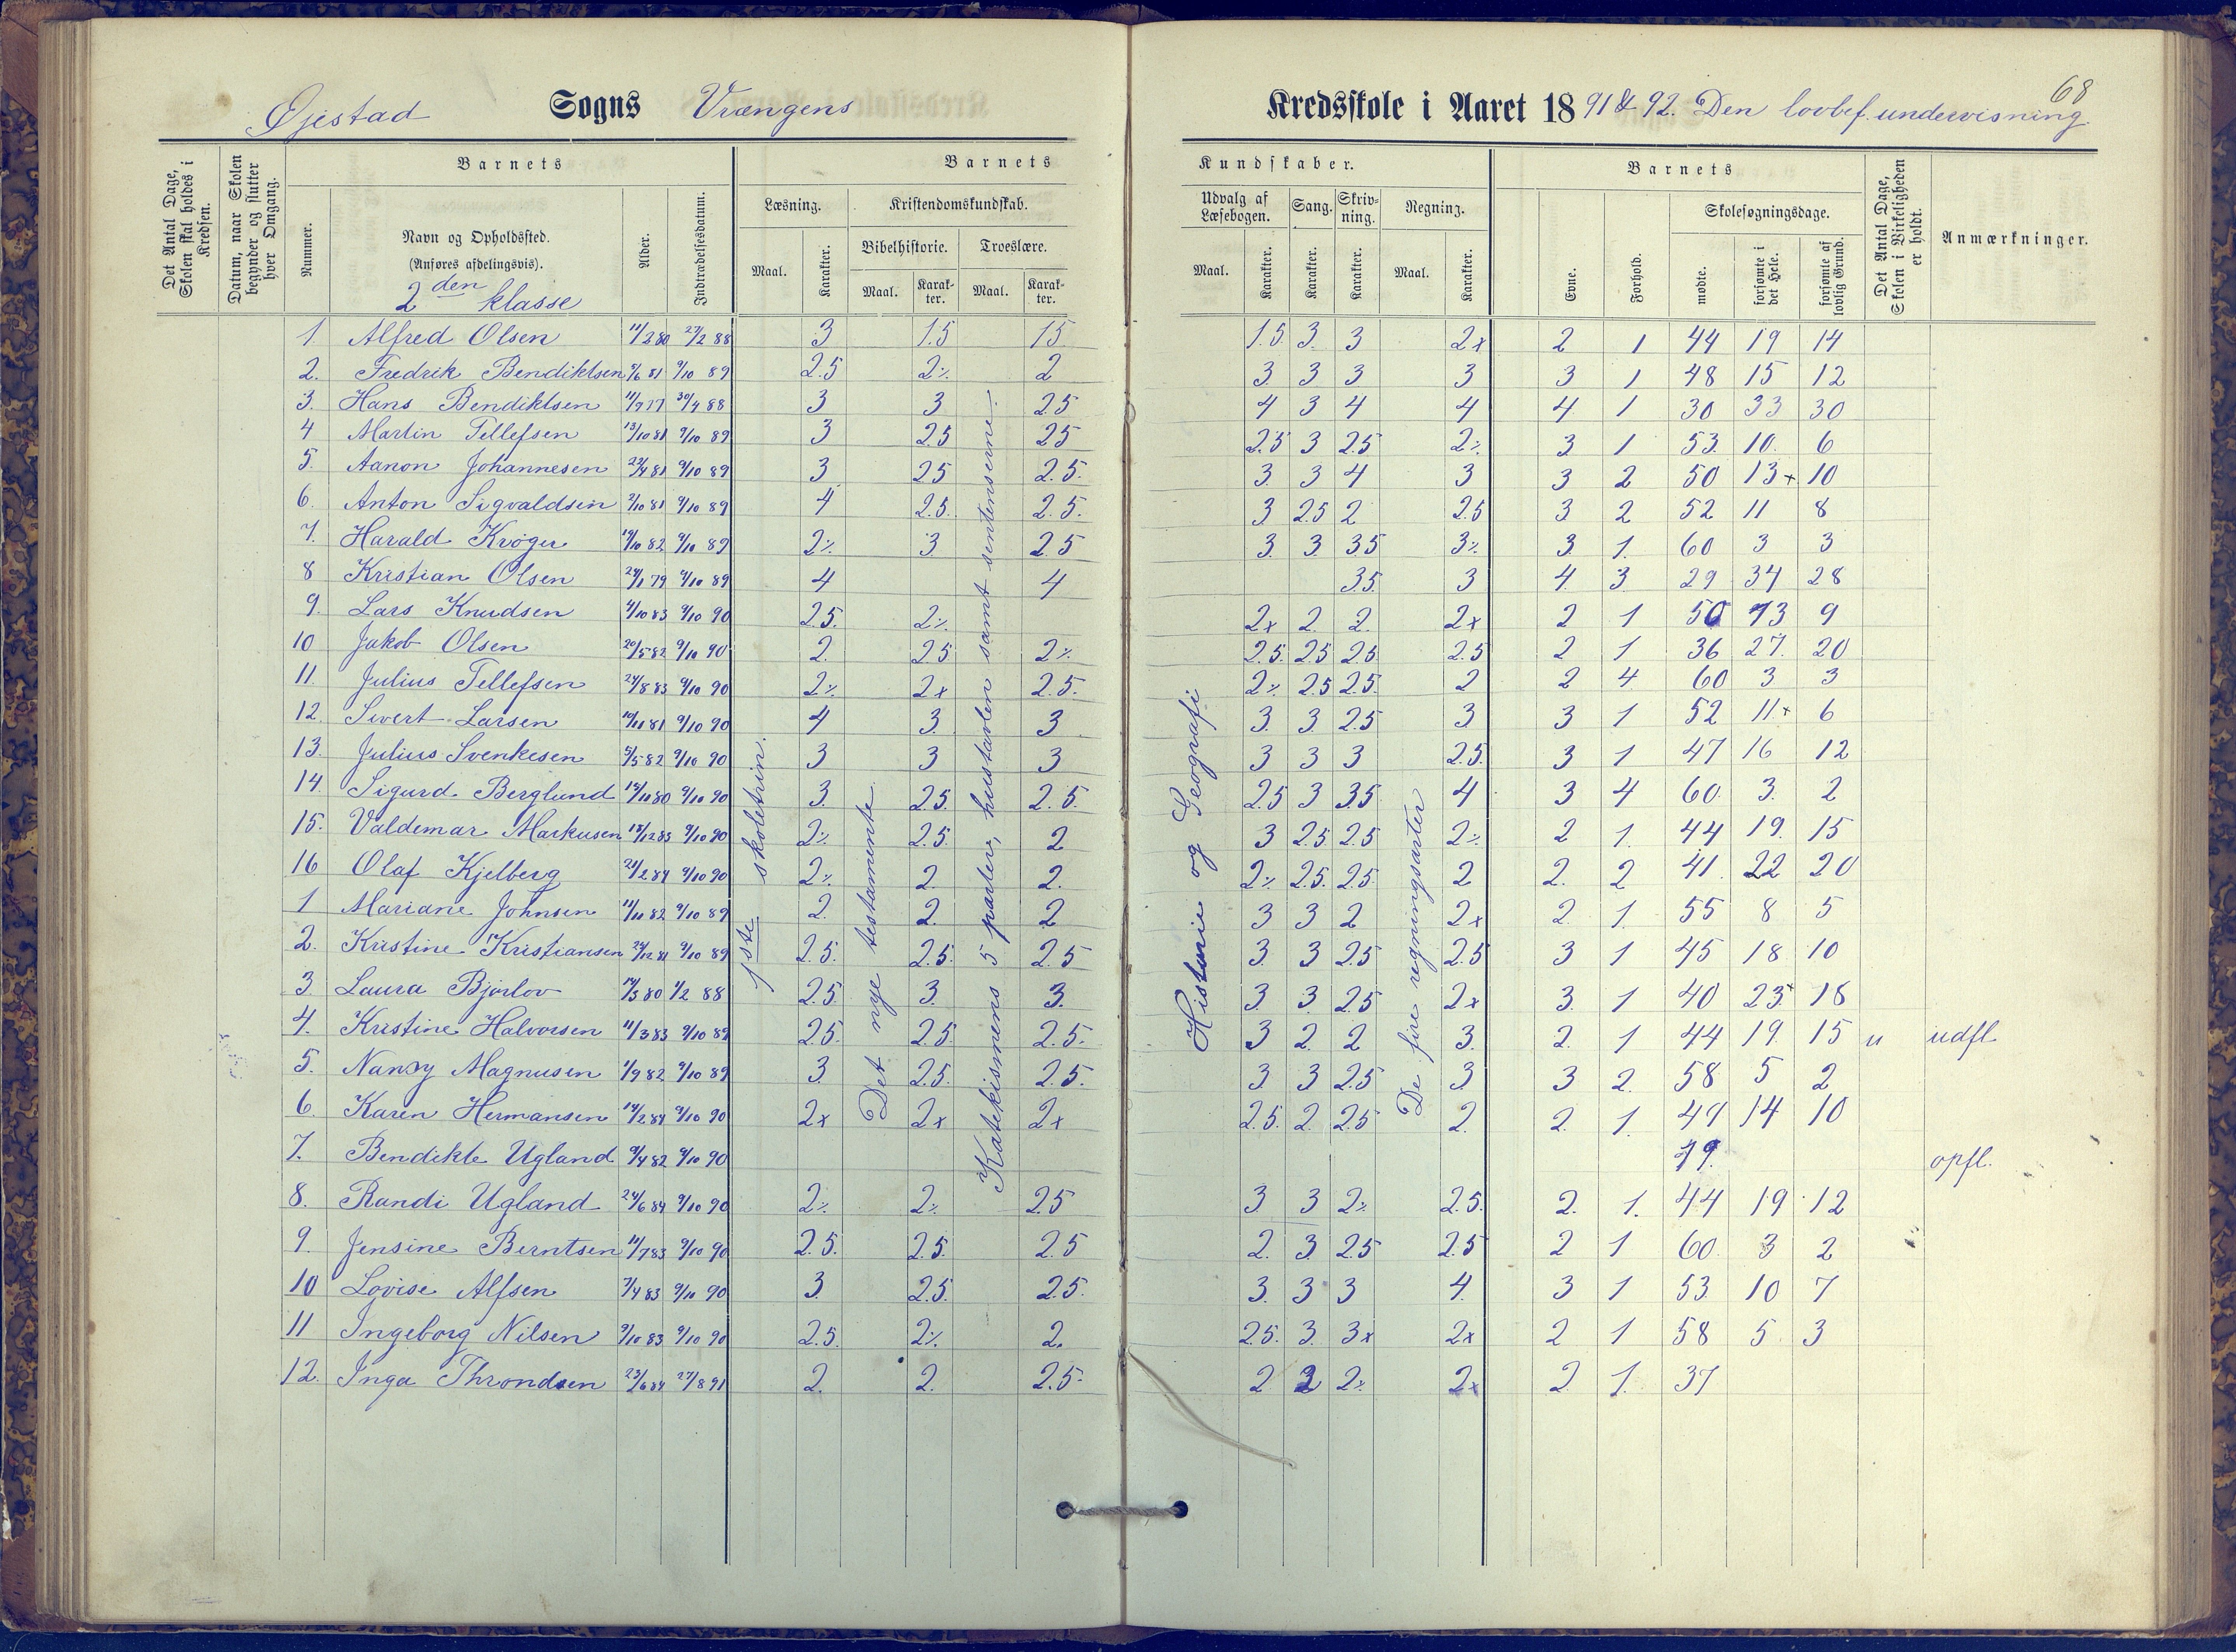 68
Øjestad Sogns Vrængens Kredsskole i Aaret 1891 & 92. Den lovbef. undervisning.
Det Antal Dage, Skolen skal holdes i Kredsen.
Datum, naar Skolen begynder og slutter hver Omgang.
Barnets
Nummer.
Navn og Opholdssted.
(Anføres afdelingsvis).
2den klasse
Alder.
Indtrædelsesdatum.
Barnets Kundskaber.
Læsning. Maal. Karakter.
Kristendomskundskab.
Bibelhistorie. Maal. Karakter.
Troeslære. Maal. Karakter.
Udvalg af Læsebogen. Maal. Karakter.
Sang. Karakter.
Skrivning. Karakter.
Regning. Maal. Karakter.
Barnets
Evne. Forhold.
Skolesøgningsdage.
mødte. forsømte i det Hele. forsømte af lovlig Grund.
Det Antal Dage, Skolen i Virkeligheden er holdt.
Anmærkninger.
1 Alfred Olsen 11/2 80 27/2 88 3 1.5 1.5 1.5 3 3 2x 2 1 44 19 14
2. Fredrik Bendiktsen 9/6 81 9/10 89 2.5 2% 2 3 3 3 3 3 1 48 15 12
3. Hans Bendiktsen 11/9 77 30/4 88 3 3 2.5 4 3 4 4 4 1 30 33 30
4 Martin Tellefsen 13/10 81 9/10 89 3 2.5 2.5 2.5 3 2.5 2% 3 1 53 10 6
5. Aanon Johannesen 22/4 81 9/10 89 3 2.5 2.5. 3 3 4 3 3 2 50 13+ 10
6. Anton Sigvaldsen 2/10 81 9/10 89 4 2.5. 2.5. 3 2.5 2 2.5 3 2 52 11 8
7. Harald Krøger 19/10 82 9/10 89 2% 3 2.5 3. 3. 3.5 3% 3. 1. 60 3 3
8 Kristian Olsen 24/1 79 9/10 89 4 4 3.5. 3 4. 3. 29 34 28
9. Lars Knudsen 4/10 83 9/10 90 2.5. 2% 2x 2 2. 2x 2 1 50 13 9
10 Jakob Olsen 20/5 82 9/10 90 2. 2.5 2% 2.5. 2.5 2.5 2.5 2 1 36 27. 20
11. Julius Tellefsen 24/8 83 9/10 90 2% 2x 2.5. 2% 2.5 2.5. 2 2 4 60 3 3
12. Sivert Larsen 19/11 81 9/10 90 4 3. 3 3. 3. 2.5 3 3 1 52 11+ 6
13. Julius Svenkesen 5/5 82 9/10 90 3 3 3 3 3 3 2.5. 3 1 47 16 12
14. Sigurd Berglund 19/11 80 9/10 90 3. 2.5. 2.5. 2.5 3 3.5 4 3 4 60. 3. 2
15. Valdemar Markusen 18/12 83 9/10 90 2% 2.5. 2 3 2.5. 2.5 2% 2 1. 44 19. 15
16 Olaf Kjelberg 21/2 84 9/10 90 2% 2. 2. 2% 2.5. 2.5. 2 2. 2 41. 22 20
1 Mariane Johnsen 11/11 82 9/10 89 2. 2. 2 3 3 2 2x 2 1. 55 8 5
2. Kristine Kristiansen 24/12 81 9/10 89 2.5. 2.5. 2.5 3. 3 2.5 2.5 3 1 45 18 10
3. Laura Bjørlov 19/3 80 1/2 88 2.5. 3. 3. 3. 3. 2.5 2x 3. 1 40 23+ 18
4. Kristine Halvorsen 11/3 83 9/10 89 2.5. 2.5. 2.5. 3 2. 2 3. 2. 1 44 19. 15 udfl.
5. Nansy Magnusen 1/9 82 9/10 89 3. 2.5. 2.5. 3. 3 2.5 3. 3 2. 58 5 2
6. Karen Hermansen 14/2 84 9/10 90 2x 2x 2x 2.5. 2. 2.5 2. 2. 1. 49 14 10
7. Bendikte Ugland 9/4 82 9/10 90 opfl.
8. Randi Ugland 24/6 84 9/10 90 2% 2% 2.5 3 3 2% 2.5. 2. 1. 44 19 12
9. Jensine Berntsen 11/7 83 9/10 90 2.5. 2.5. 2.5 2. 3. 2.5 2.5 2 1 60. 3 2
10 Lovise Alfsen 7/4 83 9/10 90 3. 2.5. 2.5. 3. 3 3 4. 3 1 53. 10 7
11 Ingeborg Nilsen 9/10 83 9/10 90 2.5. 2% 2. 2.5. 3. 3x 2x 2 1 58 5. 3
12. Inga Throndsen 23/6 84 27/8 91 2. 2. 2.5. 2 2 2% 2x 2. 1. 37
1ste skoletrin.
Det nye testamente.
Katekismens 5 parter, hustavlen samt sentenserne.
Historie og Geografi
De fire regningsarter